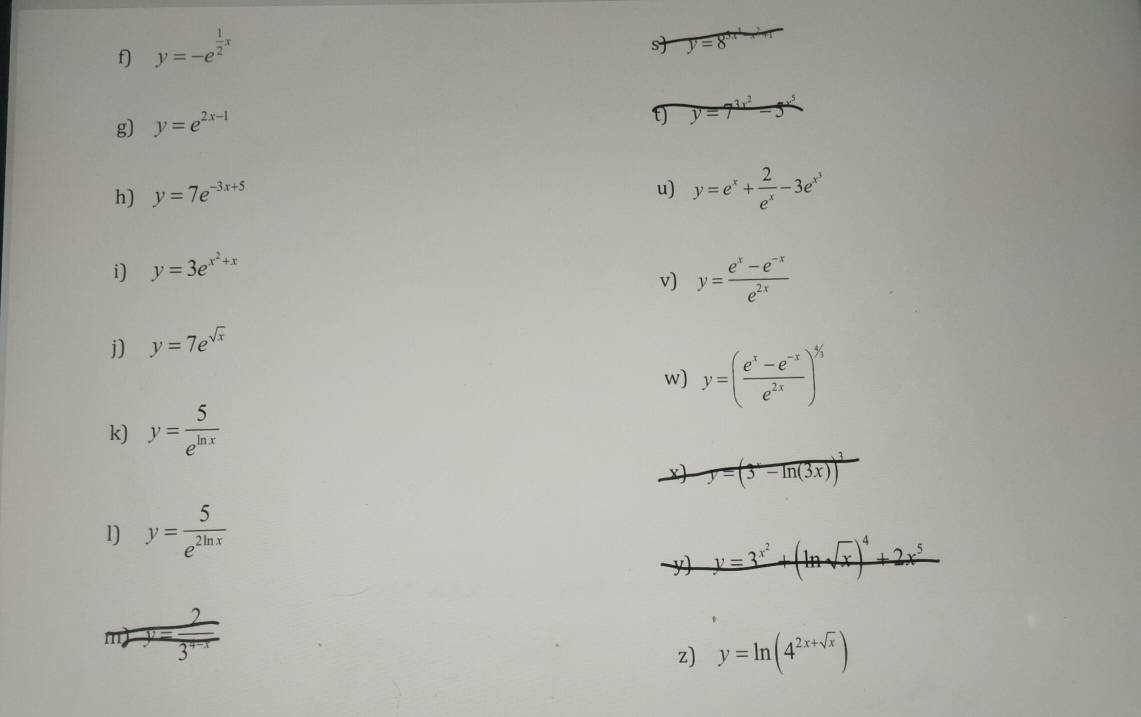 f) y = -e^{\frac{1}{2}x}
g) y = e^{2x-1}
h) y = 7e^{-3x+5}
i) y = 3e^{x^2+x}
j) y = 7e^{\sqrt{x}}
k) y = \frac{5}{e^{\ln x}}
l) y = \frac{5}{e^{2\ln x}}
m) y = \frac{2}{3^{4-x}}
s) y = 8
t) y = 7^{3x^2} - 5^{x^5}
u) y = e^x + \frac{2}{e^x} - 3e^{x^3}
v) y = \frac{e^x - e^{-x}}{e^{2x}}
w) y = \left(\frac{e^x - e^{-x}}{e^{2x}}\right)^{4/3}
x) y = (3^x - \ln(3x))^3
y) y = 3^{x^2} + (\ln \sqrt{x})^4 + 2x^5
z) y = \ln(4^{2x+\sqrt{x}})